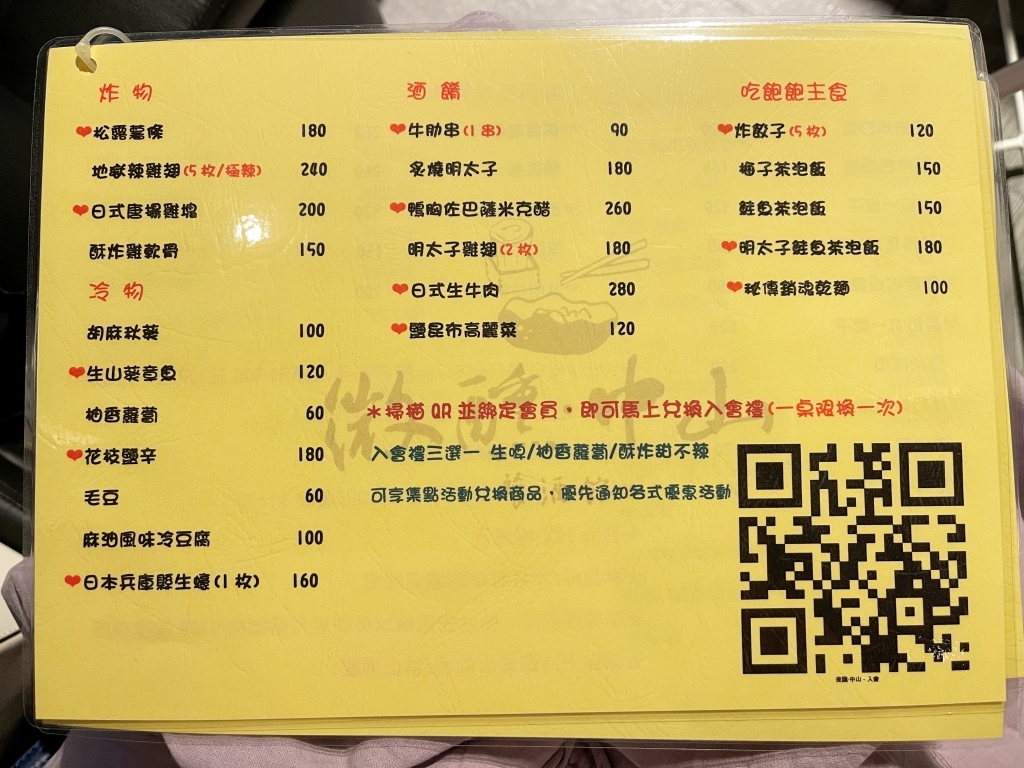 炸物
❤松露薯條 180
地獄辣雞翅(5枚/極辣) 240
❤日式唐揚雞塊 200
酥炸雞軟骨 150
冷物
胡麻秋葵 100
❤生山葵章魚 120
柚香蘿蔔 60
❤花枝鹽辛 180
毛豆 60
麻油風味冷豆腐 100
❤日本兵庫縣生蠔(1枚) 160
酒餚
❤牛肋串(1串) 90
炙燒明太子 180
❤鴨胸佐巴薩米克醋 260
明太子雞翅(2枚) 180
❤日式生牛肉 280
❤鹽昆布高麗菜 120
吃飽飽主食
❤炸餃子(5枚) 120
梅子茶泡飯 150
鮭魚茶泡飯 150
❤明太子鮭魚茶泡飯 180
❤秘傳銷魂乾麵 100
微醺·中山
＊掃描QR並綁定會員，即可馬上兌換入會禮(一桌限換一次)
入會禮三選一 生啤/柚香蘿蔔/酥炸甜不辣
可享集點活動兌換商品，優先通知各式優惠活動
微醺·中山-入會